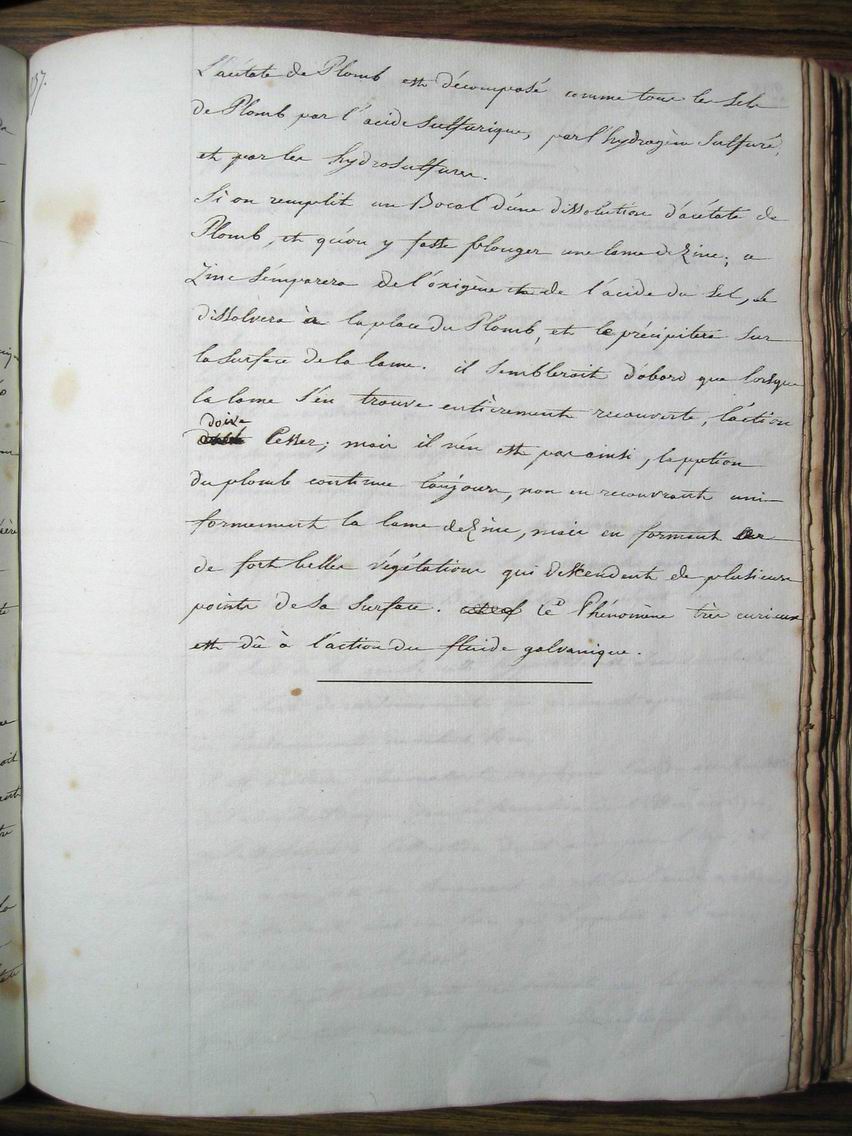 137.
L'acétate de Plomb est décomposé comme tous les Sels
de Plomb par l'acide Sulfurique, par l'hydrogène Sulfuré,
et par les hydrosulfures.
Si on remplit un Bocal d'une dissolution d'acétate de
Plomb, et qu'on y fasse plonger une lame de Zinc; ce
Zinc s'emparera de l'oxigène et de l'acide du Sel, se
dissolvera à la place du Plomb, et le précipitera Sur
la Surface de la lame. il Sembleroit d'abord que lorsque
la lame s'en trouve entièrement recouverte, l'action
doive
Cesser; mais il n'en est pas ainsi,
du plomb continue toujours, non en recouvrant uni-
formément la lame de Zinc, mais en formant
de fort belles végétations qui descendent de plusieurs
points de Sa Surface. Ce Phénomène très curieux
est dû à l'action du fluide galvanique.